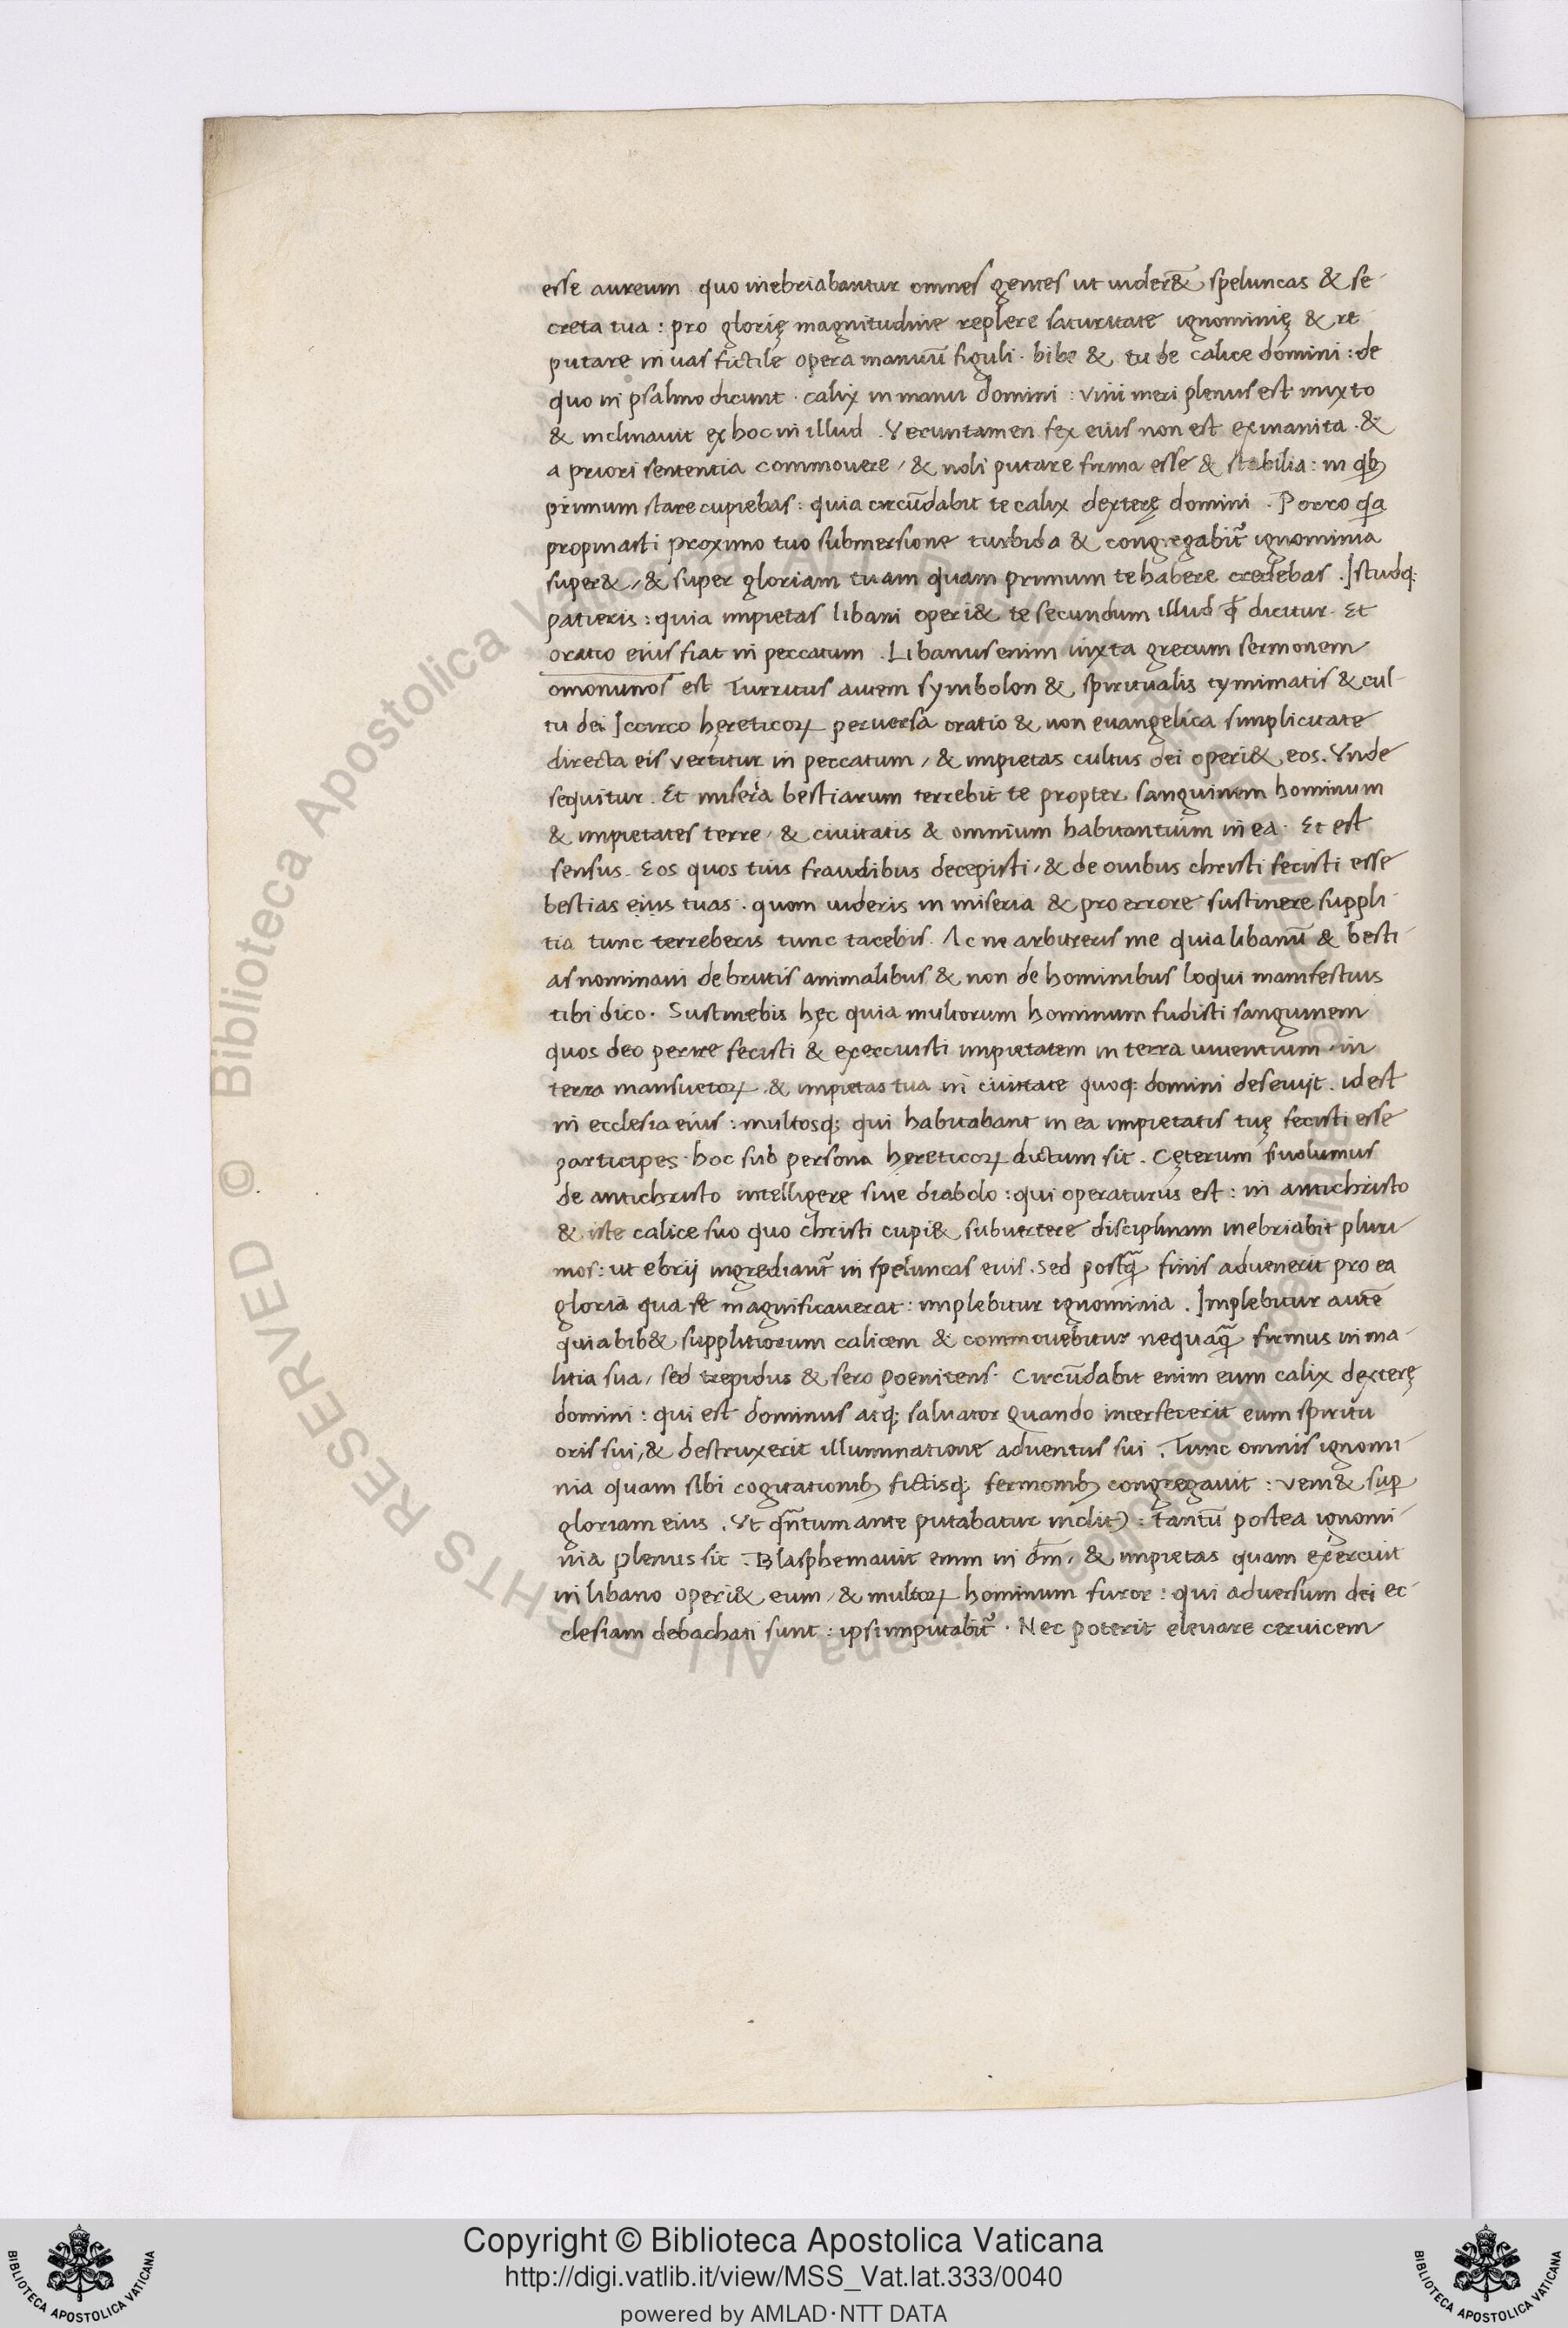 esse aureum quo inebriabantur omnes gentes ut uider&̄ speluncas & se-
creta tua : pro glorię magnitudine replere saturitate ignominię & re
putare in uas fictile opera manuū figuli . bibe & tu de calice domini : de
quo in psalmo dicunt . calix in manu domini : vini meri plenus est mixto
& inclinauit ex hoc in illud . Veruntamen fex eius non est exinanita . &
a priori sententia commouere , & noli putare firma esse & stabilia : in qbꝫ
primum stare cupiebas : quia circūdabit te calix dexterę domini . Porro qa
propinasti proximo tuo submersione turbida & congregabit᷑ ignominia
super& , & super gloriam tuam quam primum te habere credebas . Istudq;
patieris : quia impietas libani operi& te secundum illud qđ dicitur . Et
oratio eius fiat in peccatum . Libanus enim iuxta grecum sermonem
omonunos est Turritus autem symbolon & spiritualis tymimatis & cul-
tu dei Icarco hereticoꝝ peruersa oratio & non euangelica simplicitate
directa eis vertitur in peccatum , & impietas cultus dei operi& eos . Vnde
sequitur . Et miseria bestiarum terrebit te propter sanguinem hominum
& impietates terre , & ciuitatis & omnium habitantium in ea . Et est
sensus . Eos quos tuis fraudibus decepisti , & de ouibus christi fecisti esse
bestias eius tuas . quom uideris in miseria & pro errore sustinere suppli
tia tunc terreberis tunc tacebis . Ac ne arbitreris me quia libanū & besti-
as nominaui de brutis animalibus & non de hominibus loqui manifestius
tibi dico . Sustinebis hęc quia multorum hominum fudisti sanguinem
quos deo perire fecisti & exercuisti impietatem in terra uiuentium , in
terra mansuetoꝝ & impietas tua in ciuitate quoq; domini deseuijt . idest
in ecclesia eius : multosq; qui habitabant in ea impietatis tuę fecisti esse
participes . hoc sub persona hereticoꝝ dictum sit . Cęterum si uolumus
de antichristo intelligere siue diabolo : qui operaturus est : in antichristo
& iste calice suo quo christi cupi& subuertere disciplinam inebriabit pluri-
mos : ut ebrij ingrediant᷑ in speluncas eius . sed postq̄ finis aduenerit pro ea
gloria qua se magnificauerat : implebitur ignominia . Implebitur autē
quia bib& supplitiorum calicem & commouebitur nequaq̄ firmus in ma-
litia sua , sed trepidus & sero poenitens . Circūdabit enim eum calix dexterę
domini : qui est dominus atq; saluator Quando interfecerit eum spiritu
oris sui , & destruxerit illuminatione aduentus sui . Tunc omnis ignomi-
nia quam sibi cogitationibꝫ fictisq; sermonibꝫ congregauit : veni& suꝑ
gloriam eius . Vt qn̄tum ante putabatur inclitꝰ : tantū postea ignomi-
nia plenus sit . Blasphemauit enim in dm̄ , & impietas quam exercuit
in libano operi& eum , & multoꝝ hominum furor : qui aduersum dei ec-
clesiam debachati sunt : ipsi imputabit᷑ . Nec poterit eleuare ceruicem
© Biblioteca Apostolica Vaticana ALL RIGHTS RESERVED
Copyright © Biblioteca Apostolica Vaticana
http://digi.vatlib.it/view/MSS_Vat.lat.333/0040
powered by AMLAD·NTT DATA
BIBLIOTECA APOSTOLICA VATICANA
BIBLIOTECA APOSTOLICA VATICANA